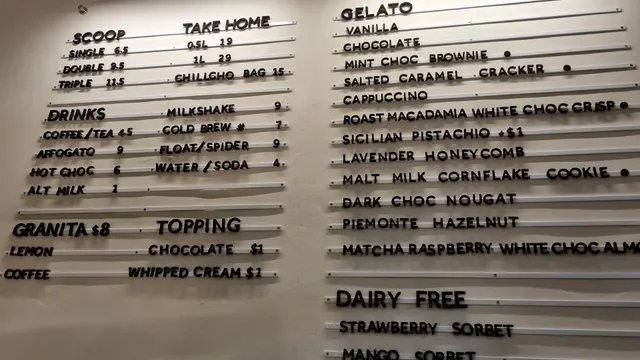 SCOOP
SINGLE 6.5
DOUBLE 9.5
TRIPLE 11.5
TAKE HOME
0.5L 19
1L 29
CHILLCHO BAG 15
DRINKS
COFFEE/TEA 4.5
AFFOGATO 9
HOT CHOC 6
ALT MILK 1
MILKSHAKE 9
COLD BREW # 7
FLOAT/SPIDER 9
WATER/SODA 4
GRANITA $8
LEMON
COFFEE
TOPPING
CHOCOLATE $1
WHIPPED CREAM $1
GELATO
VANILLA
CHOCOLATE
MINT CHOC BROWNIE ●
SALTED CARAMEL CRACKER ●
CAPPUCCINO
ROAST MACADAMIA WHITE CHOC CRISP ●
SICILIAN PISTACHIO +$1
LAVENDER HONEYCOMB
MALT MILK CORNFLAKE COOKIE ●
DARK CHOC NOUGAT
PIEMONTE HAZELNUT
MATCHA RASPBERRY WHITE CHOC ALMO
DAIRY FREE
STRAWBERRY SORBET
MANGO SORBET